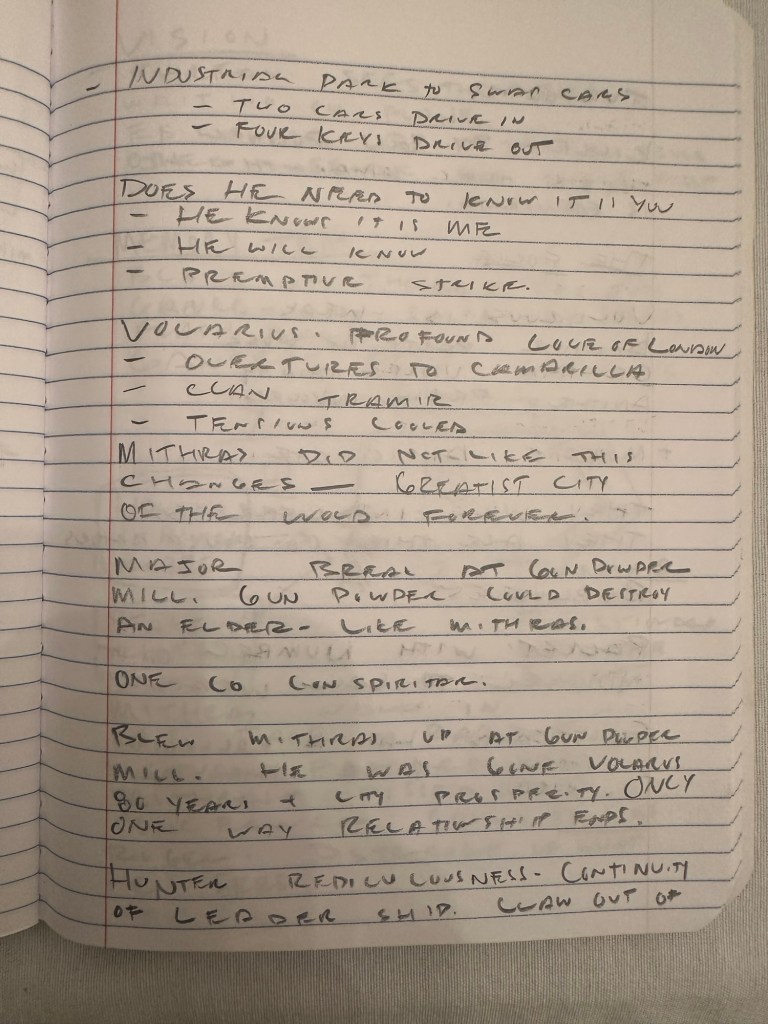 - INDUSTRIAL PARK to SWAP CARS
- TWO CARS DRIVE IN
- FOUR KEYS DRIVE OUT
DOES HE NEED TO KNOW IT IS YOU
- HE KNOWS IT IS ME
- HE WILL KNOW
- PREMPTIVE STRIKE.
VOLARIUS. PROFOUND LOVE OF LONDON
- OVERTURES TO CAMARILLA
- CLAN TRAMIR
- TENSIONS COOLED
MITHRAS DID NOT LIKE THIS
CHANGES — GREATIST CITY
OF THE WOLD FOREVER.
MAJOR BREAK AT GUN POWDER
MILL. GUN POWDER COULD DESTROY
AN ELDER - LIKE MITHRAS.
ONE CO CONSPIRITOR.
BLEW MITHRAS UP AT GUN POWDER
MILL. HE WAS GONE VOLARUS
80 YEARS + CITY PROSPERITY. ONLY
ONE WAY RELATIONSHIP ENDS.
HUNTER REDICULOUSNESS - CONTINUITY
OF LEADER SHIP. CLAW OUT OF